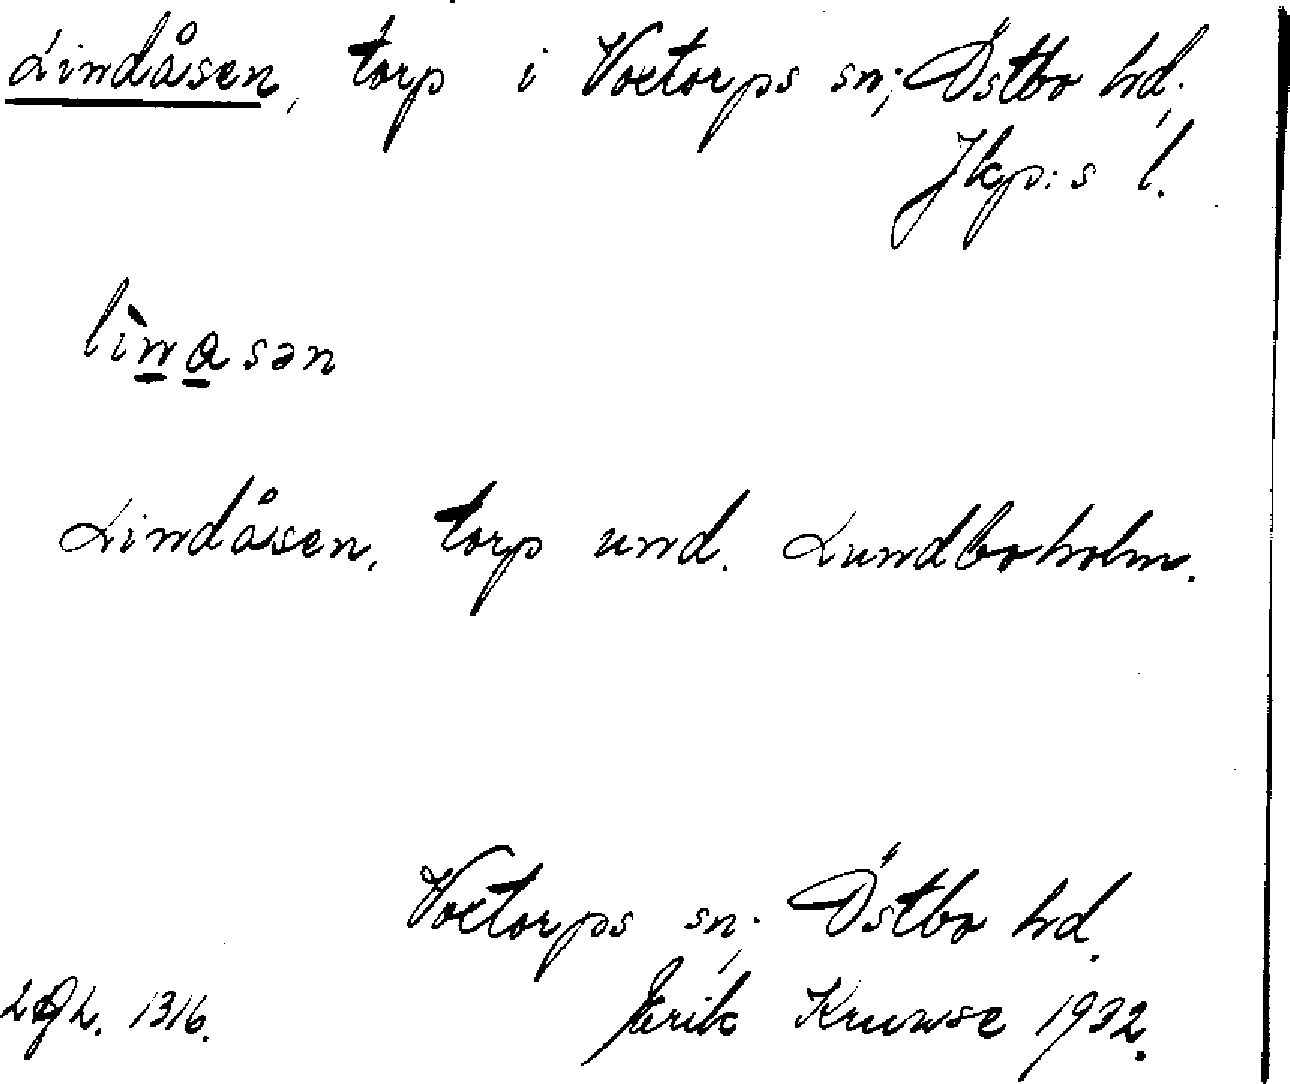 Lindåsen, torp i Voxtorps sn; Östbo hd;
Jkp:s l.
lìnasən
Lindåsen, torp und. Lundboholm.
Voxtorps sn; Östbo hd.
1316. Erik Kruuse 1932.